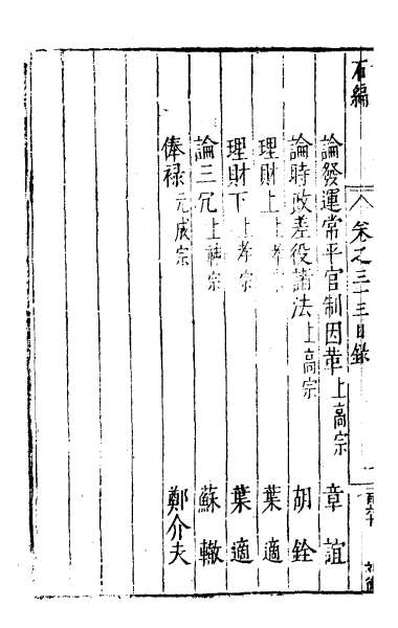 右編
卷之三十三目錄
論發運常平官制因革 上高宗 章誼
論時政差役諸法 上高宗 胡銓
理財上 上孝 葉適
理財下 上孝宗 葉適
論三冗 上神宗 蘇轍
俸祿 元成宗 鄭介夫